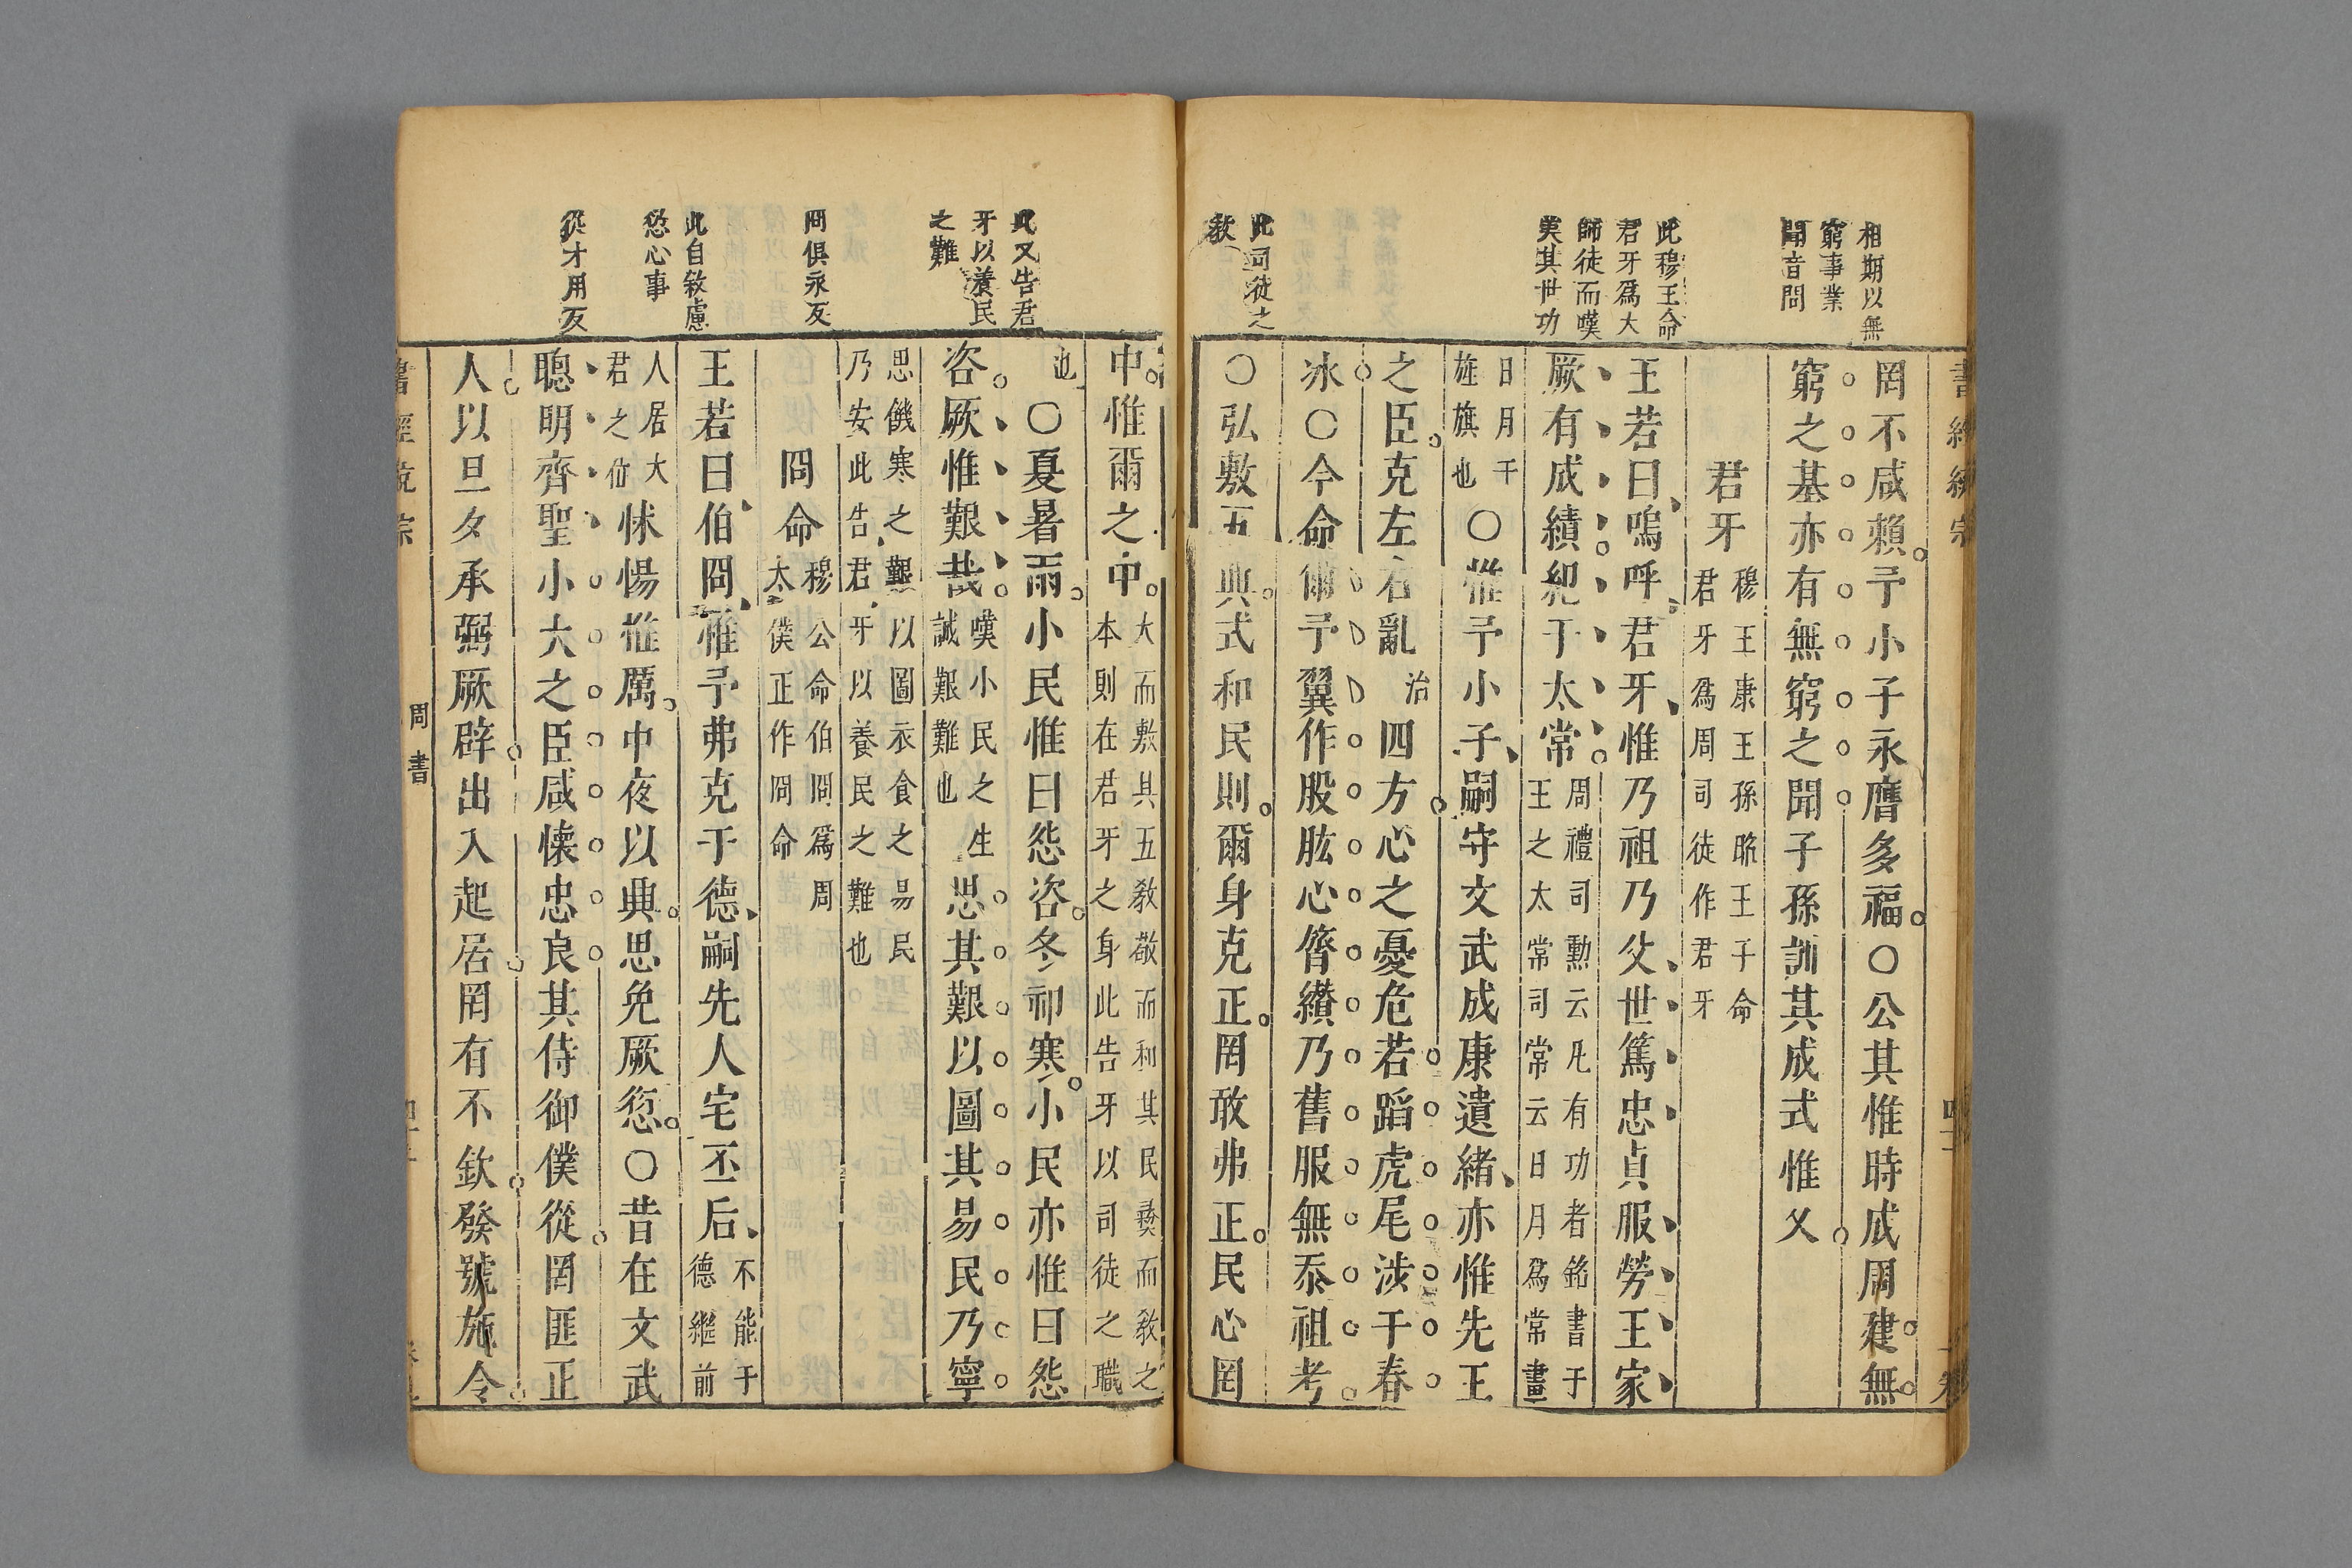 相期以無
窮事業
聞音問
此穆王命
君牙爲大
師徒而嘆
美其世功
此司徒之
敎
罔不咸賴予小子永膺多福〇公其惟時成周建無
窮之基亦有無窮之聞子孫訓其成式惟乂
君牙 穆王康王孫昭王子命
君牙爲周司徒作君牙
王若曰嗚呼君牙惟乃祖乃父世篤忠貞服勞王家
厥有成績紀于太常 周禮司勲云凡有功者銘書于
王之太常司常云日月爲常畫
日月于
旌旗也 〇惟予小子嗣守文武成康遺緒亦惟先王
之臣克左右亂 治 四方心之憂危若蹈虎尾涉于春
冰〇今命爾予翼作股肱心膂纉乃舊服無忝祖考
〇弘敷五典式和民則爾身克正罔敢弗正民心罔
此又告君
牙以養民
之難
冏俱永反
此自敘慮
愆心事
從才用反
中惟爾之中 大而敷其五敎敬而和其民彜而敎之
本則在君牙之身此告牙以司徒之職
也 〇夏暑雨小民惟曰怨咨冬祁寒小民亦惟曰怨
咨厥惟艱哉 嘆小民之生
誠艱難也 思其艱以圖其易民乃寧
思饑寒之艱以圖衣食之易民
乃安此告君牙以養民之難也
冏命 穆公命伯冏爲周
太僕正作冏命
王若曰伯冏惟予弗克于德嗣先人宅丕后 不能于
德繼前
人居大
君之位 怵惕惟厲中夜以興思免厥愆〇昔在文武
聰明齊聖小大之臣咸懐忠良其侍御僕從罔匪正
人以旦夕承弼厥辟出入起居罔有不欽發號施令
周書